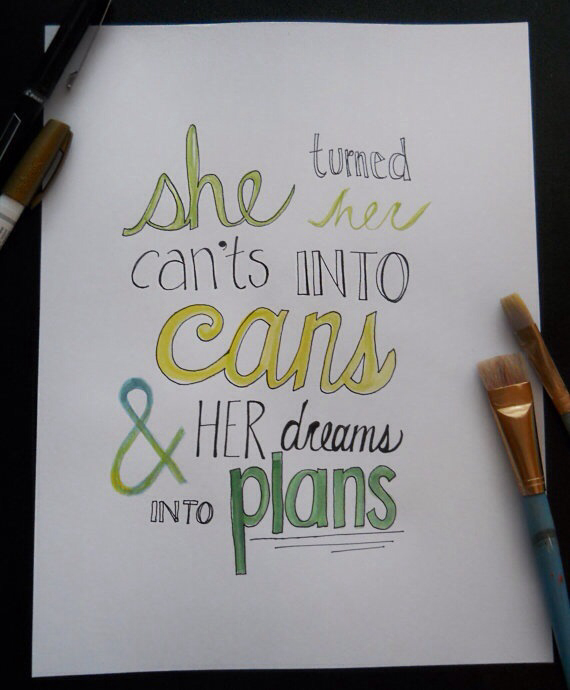 she turned
her
can'ts INTO
cans
& HER dreams
INTO plans